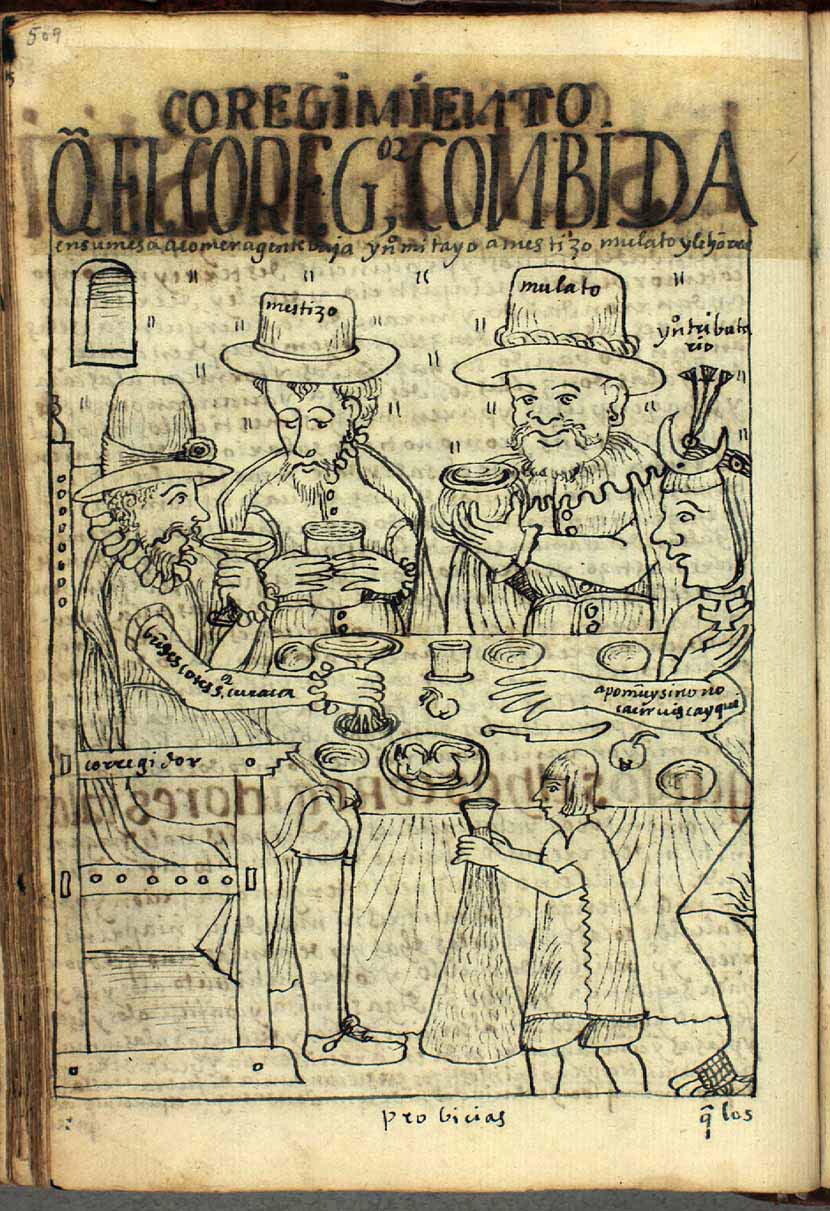 509
COREGIMIENTO
Q̃ EL COREG,OR CONBIDA
en su mesa a comer a gente baja yn̄o mitayo a mestizo mulato y le hōrra
mestizo
mulato
yn̄o tributa
rio
curaca
apo muy sino no
corregidor
probicias
q̄ los